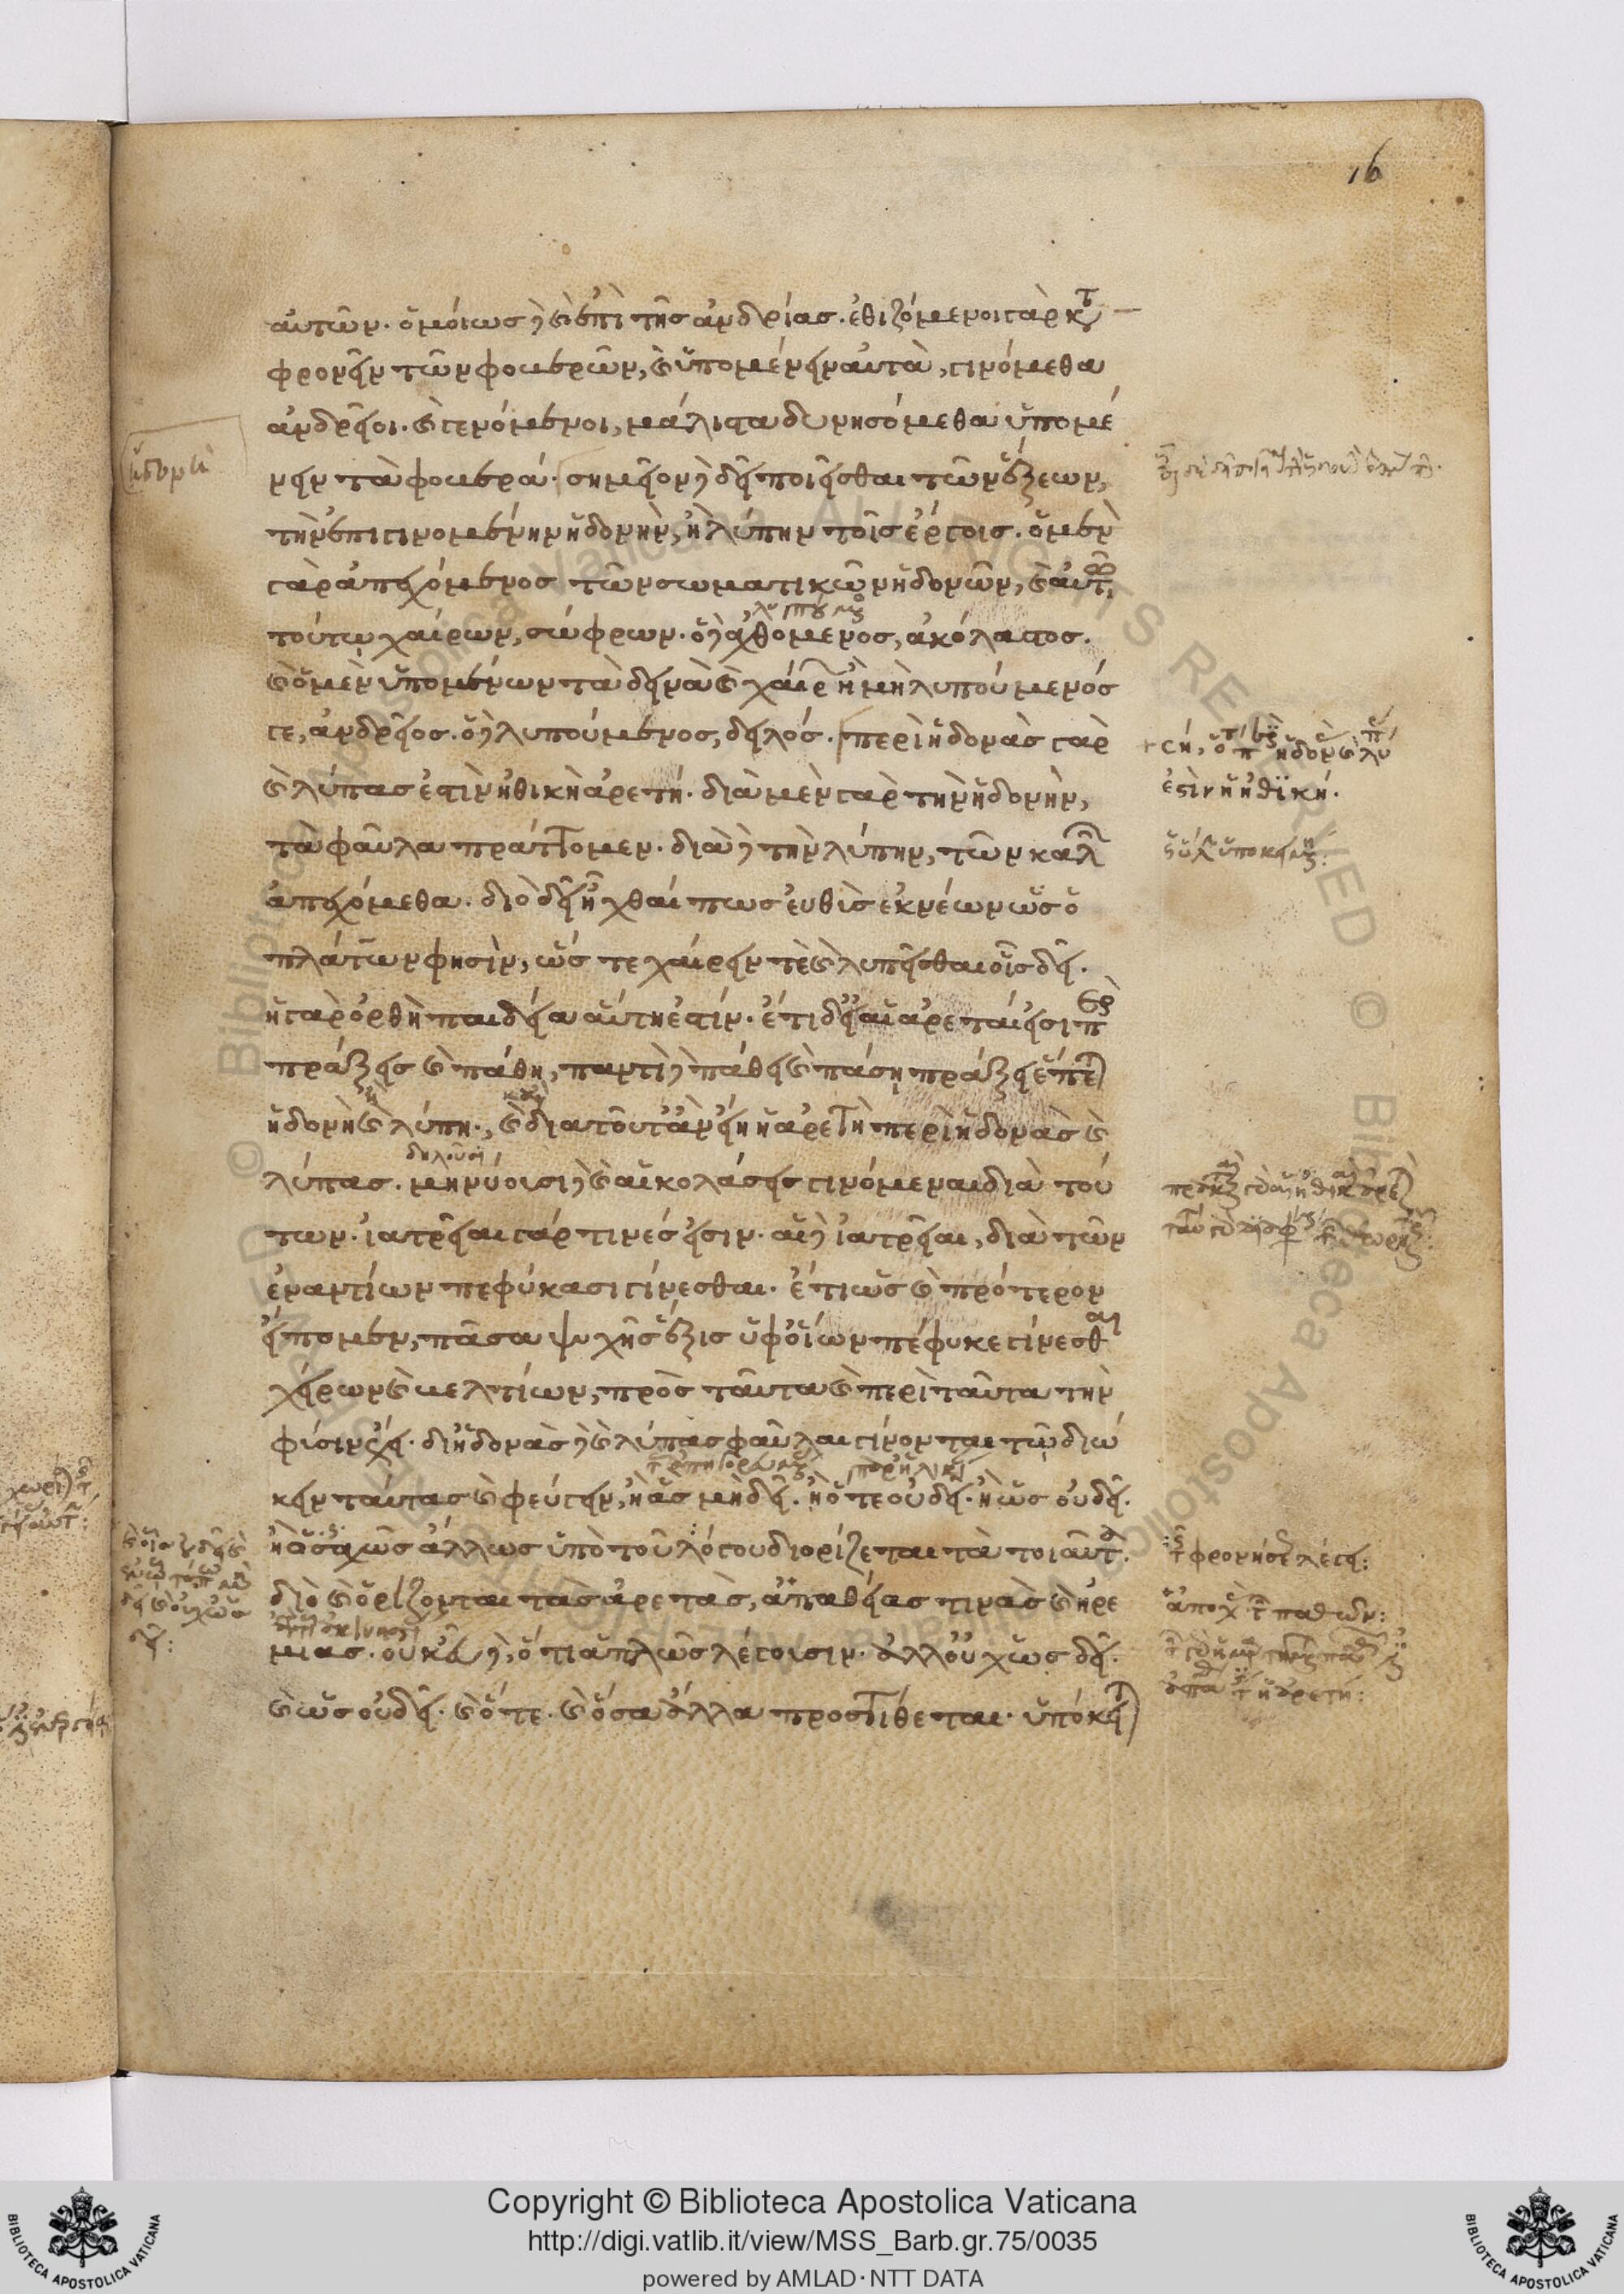 αὐτῶν. ὁμοίως δὲ καὶ ἐπὶ τῆς ἀνδρίας. ἐθιζόμενοι γὰρ κατ
φρονεῖν τῶν φοβερῶν, καὶ ὑπομένειν αὐτὰ, γινόμεθα
ἀνδρεῖοι. καὶ γενόμενοι, μάλιστα δυνησόμεθα ὑπομέ
νειν τὰ φοβερά. σημεῖον δὲ δεῖ ποιεῖσθαι τῶν ἕξεων,
τὴν ἐπιγινομένην ἡδονὴν, ἢ λύπην τοῖς ἔργοις. ὁ μὲν
γὰρ ἀπεχόμενος τῶν σωματικῶν ἡδονῶν, καὶ αὐτῶ
τούτῳ χαίρων, σώφρων. ὁ δὲ ἀχθόμενος, ἀκόλαστος.
καὶ ὁ μὲν ὑπομένων τὰ δεινὰ καὶ χαίρων ἢ μὴ λυπούμενός
γε, ἀνδρεῖος. ὁ δὲ λυπούμενος, δειλός. περὶ ἡδονὰς γὰρ
καὶ λύπας ἐστὶν ἡ ἠθικὴ ἀρετή. διὰ μὲν γὰρ τὴν ἡδονὴν,
τὰ φαῦλα πράττομεν. διὰ δὲ τὴν λύπην, τῶν καλῶν
ἀπεχόμεθα. διὸ δεῖ ἦχθαί πως εὐθὺς ἐκ νέων ὡς ὁ
πλάτων φησὶν, ὥστε χαίρειν τὲ καὶ λυπεῖσθαι οἷς δεῖ.
ἡ γὰρ ὀρθὴ παιδεία αὕτη ἐστίν. ἔτι δ' εἰ αἱ ἀρεταί εἰσι περὶ
πράξεις καὶ πάθη, παντὶ δὲ πάθει καὶ πάσῃ πράξει ἕπεται
ἡδονὴ καὶ λύπη, καὶ διὰ τοῦτ' ἂν εἴη ἡ ἀρετὴ περὶ ἡδονὰς καὶ
λύπας. μηνύουσι δὲ καὶ αἱ κολάσεις γινόμεναι διὰ τού
των. ἰατρεῖαι γάρ τινές εἰσιν. αἱ δὲ ἰατρεῖαι, διὰ τῶν
ἐναντίων πεφύκασι γίνεσθαι. ἔτι ὡς καὶ πρότερον
εἴπομεν, πᾶσα ψυχῆς ἕξις ὑφ' οἵων πέφυκε γίνεσθαι
χείρων καὶ βελτίων, πρὸς ταῦτα καὶ περὶ ταῦτα τὴν
φύσιν ἔχει. δι' ἡδονὰς δὲ καὶ λύπας φαῦλαι γίνονται τῷ διώ
κειν ταύτας καὶ φεύγειν, ἢ ἃς μὴ δεῖ. ἢ ὅτε οὐ δεῖ. ἢ ὡς οὐ δεῖ.
ἢ ὁσαχῶς ἄλλως ὑπὸ τοῦ λόγου διορίζεται τὰ τοιαῦτα.
διὸ καὶ ὁρίζονται τὰς ἀρετὰς, ἀπαθείας τινὰς καὶ ἠρε
μίας. οὐκ εὖ δὲ, ὅτι ἁπλῶς λέγουσιν. ἀλλ' οὐχ ὡς δεῖ.
καὶ ὡς οὐ δεῖ. καὶ ὅτε. καὶ ὅσα ἄλλα προστίθεται. ὑπόκειται
16
λυπούμενος
δηλοῦσι
ἐστὶν ἡ ἠθική.
φρονήσει λέγει:
Copyright © Biblioteca Apostolica Vaticana
http://digi.vatlib.it/view/MSS_Barb.gr.75/0035
powered by AMLAD · NTT DATA
BIBLIOTECA APOSTOLICA VATICANA
BIBLIOTECA APOSTOLICA VATICANA